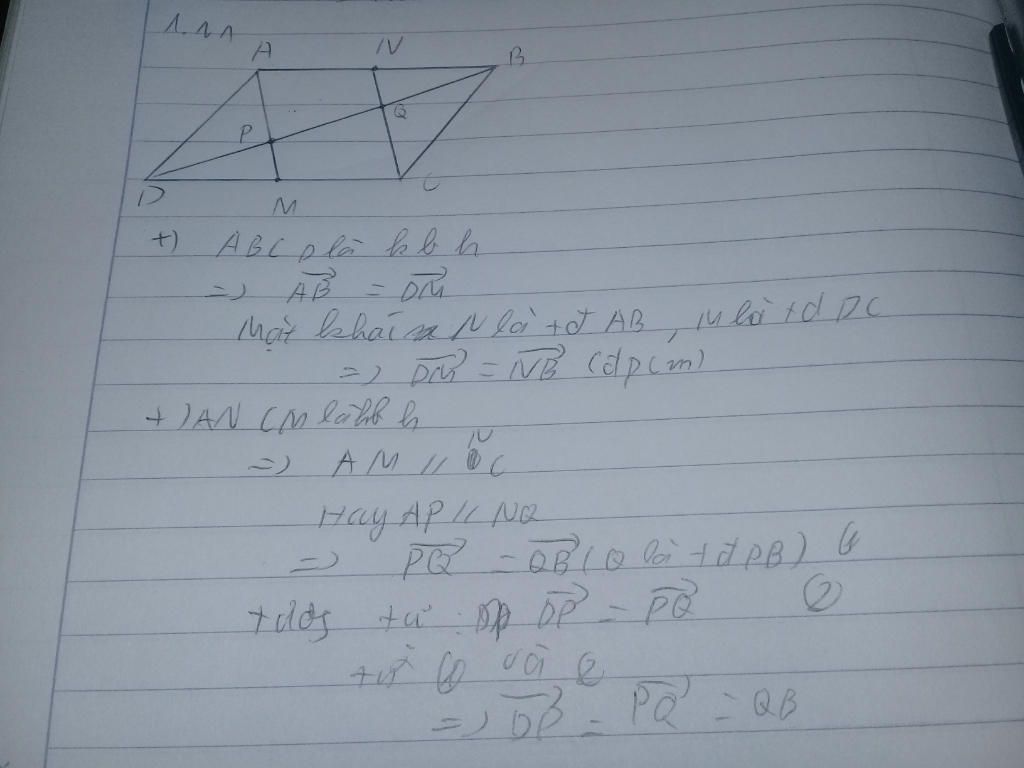 1.11
A N B
P Q
D M C
+) ABCD là hbh
=> AB = DM
Mặt khác N là tđ AB, M là tđ DC
=> DM = NB (đpcm)
+) ANCM là hbh
=> AM // NC
Hay AP // NQ
=> PQ = QB (Q là tđ PB) (1)
tương tự : DP = PQ (2)
từ (1) và (2)
=> DP = PQ = QB